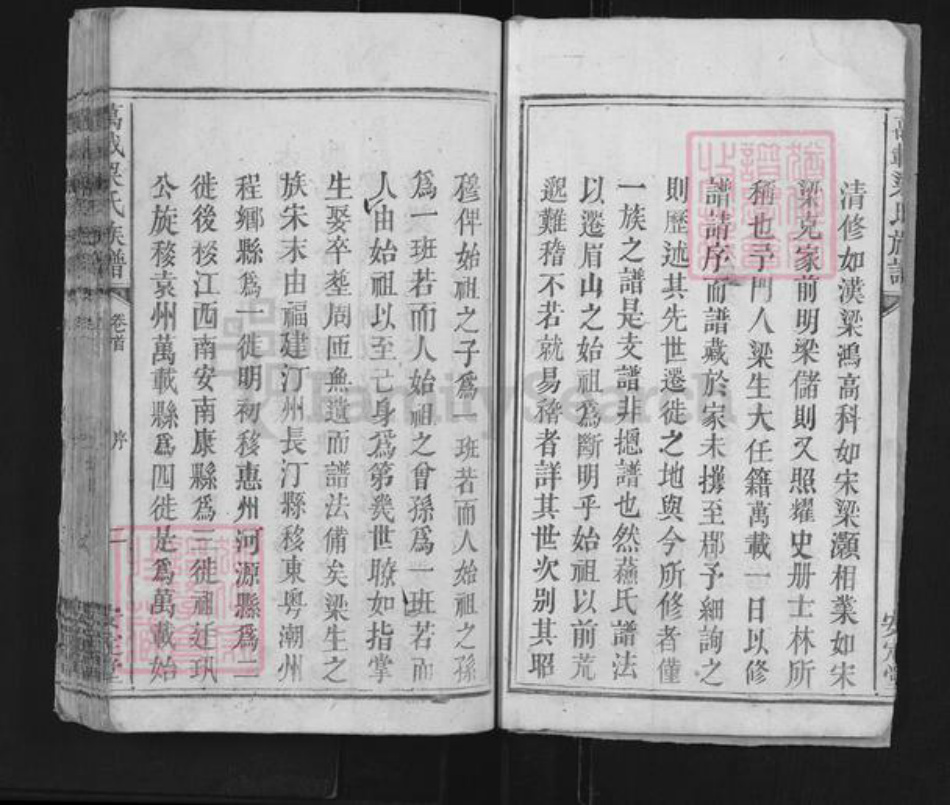 清修如漢梁鴻高科如宋梁灝相業如宋
梁克家前明梁儲則又照耀史册士林所
稱也予門人梁生大任籍萬載一日以修
譜請序而譜藏於家未攜至郡予細詢之
則歷述其先世遷徙之地與今所修者僅
一族之譜是支譜非摠譜也然蘓氏譜法
以遷眉山之始祖爲斷明乎始祖以前荒
邈難稽不若就易稽者詳其世次别其昭
穆俾始祖之子爲一班若而人始祖之孫
爲一班若而人始祖之曾孫爲一班若而
人由始祖以至己身爲第幾世瞭如指掌
生娶卒塟周匝無遺而譜法俻矣梁生之
族宋末由福建汀州長汀縣移東粵潮州
程鄉縣爲一徙明初移惠州河源縣爲二
徙後移江西南安南康縣爲三徙祖廷
公旋移袁州萬載縣爲四徙是爲萬載始
萬載梁氏族譜
卷首
序
二
安定堂
FamilySearch